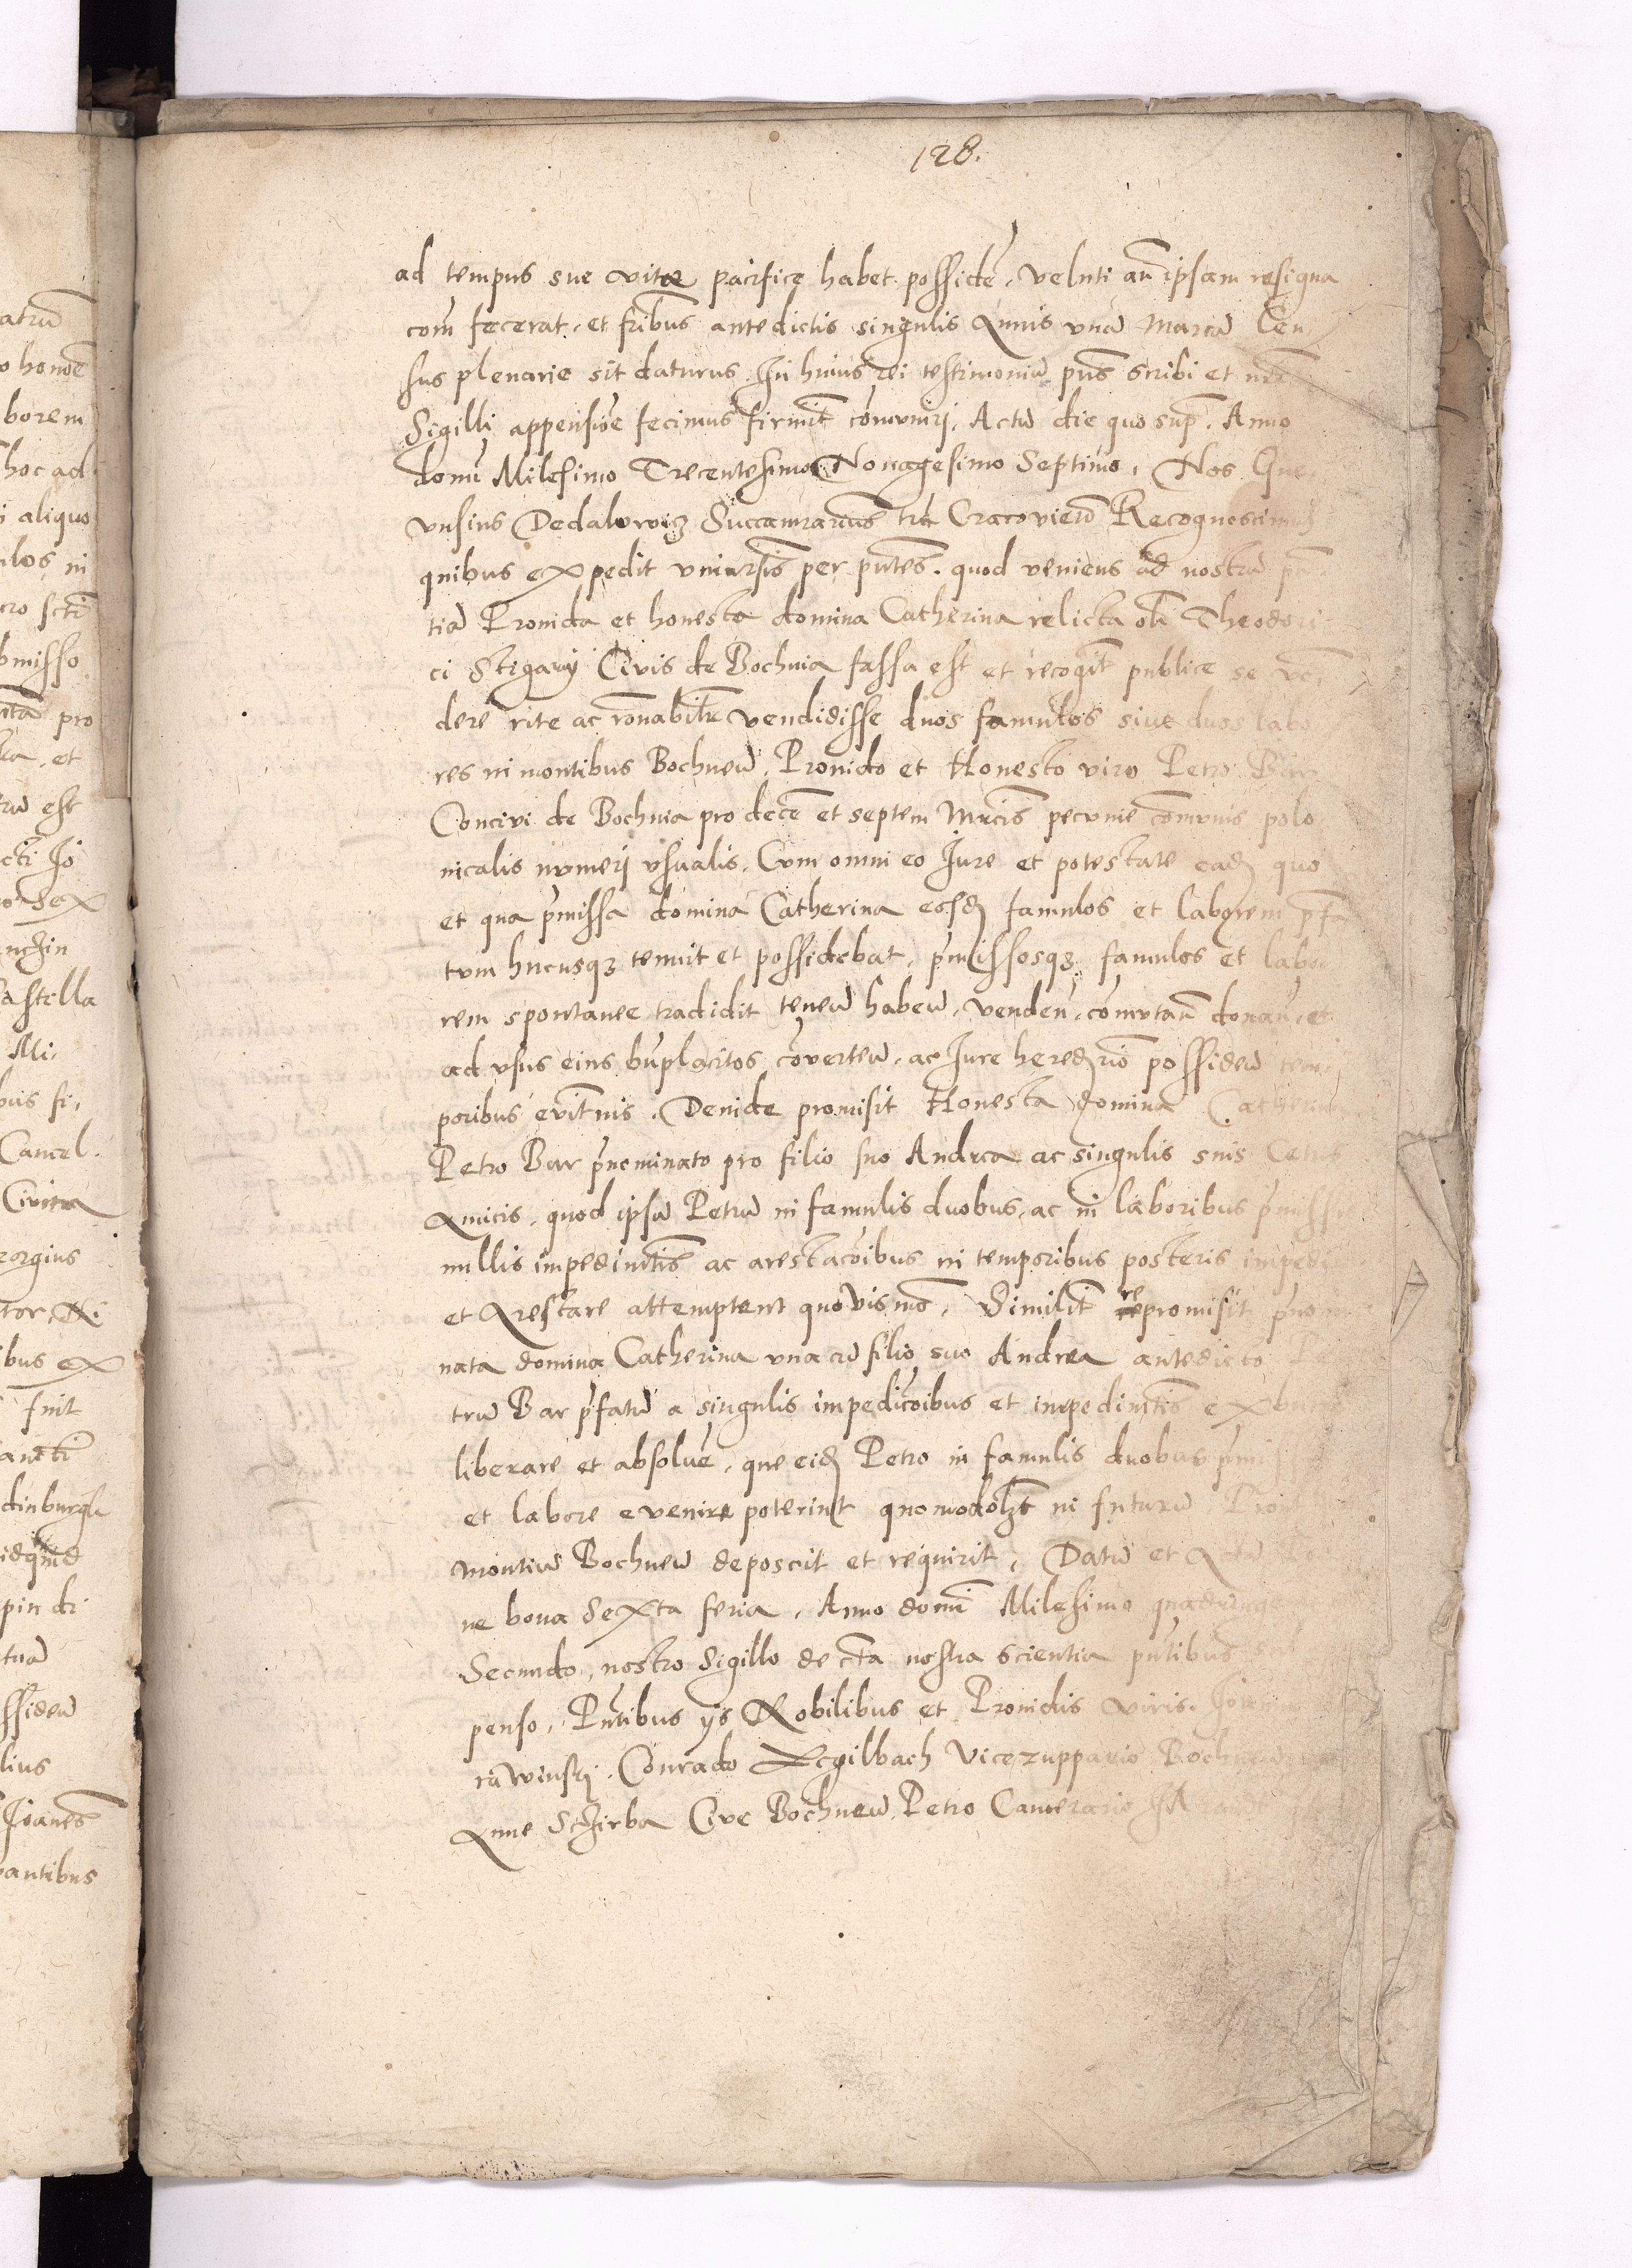 128.
ad tempus sue vitæ pacifice habet possidē, veluti añ ipsam resigna
com̄ fecerat, et fr̄ibus antedictis singulis Annis vnā Marcā Cen
sus plenarie sit daturus. In huius rei testimoniū pn̄s scribi et nr̄i
Sigilli appensioē fecimus firmit̄ com̄vnirj. Actū die quo sup̄. Anno
domī Milesimo Trecentesimo Nonagesimo Septimo. Nos Gne
vnsius Dedalowicz Succamrariūs trē Cracovień Recognoscimus
quibus expedit vniuersīs per pn̄tes. quod veniens ad nostrā pn̄
tiā Prouida et honesta domina Catherina relicta ol̄i Theodori
ci Stigarij Civis de Bochnia fassa est et recogn̄it publice se ven
dere rite ac rōnabilitr̄ vendidisse duos famulos siue duos labo
res in montibus Bochneń. Prouido et Honesto viro Petro Bar
Concivi de Bochnia pro decē et septem Mrcīs pecvnie com̄vnis polo
nicalis nvmerj vsualis. Cvm omni eo Iure et potestate eadȝ quo
et qua p̄missa domina Catherina eosdȝ famulos et laborem p̄fa
tvm hucusqȝ tenuit et possidebat, p̄missosqȝ famulos et labo
rem spontanee tradidit teneń habeń, vendeń, com̄vtań donań, et
ad vsus eius bn̄placitos cōverteń, ac Iure hereditario possideń tem
poribus evit̄nis. Deinde promisit Honesta domina Catherina
Petro Bar p̄nominato pro filio suo Andrea ac singulis suis Cetis
Amicis, quod ipsū Petrū in famulis duobus, ac in laboribus p̄missis
nullis impedimn̄tis ac arestac̄oibus in temporibus posteris impedi
et Arestare attemptent quovismō. Similit̄ repromisit p̄no
nata domina Catherina vna cū filio suo Andrea antedicto
trū Bar p̄fatū a singulis impedic̄oibus et impedimn̄tis ex
liberare et absoluē, que eidȝ Petro in famulis duobus p̄mis
et labore evenire poterint quomodolȝt in futurū Prout
montiū Bochneń deposcit et requirit. Datū et Actū
ne bova Sexta feria, Anno domī Milesimo quadringe
Secundo, nostro Sigillo de cr̄ta nostra scientia pn̄tibus
penso, Pn̄tibus ijs Nobilibus et Prouidis viris.
rawinskj. Conrado Legilbach Vicezuppario Bochneń
Anne Schirba Cive Bochneń, Petro Camerario